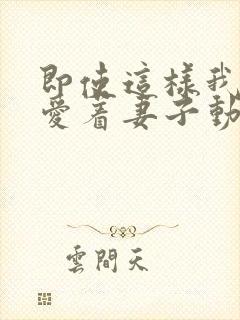 即使這樣我
愛着妻子動
雲間天